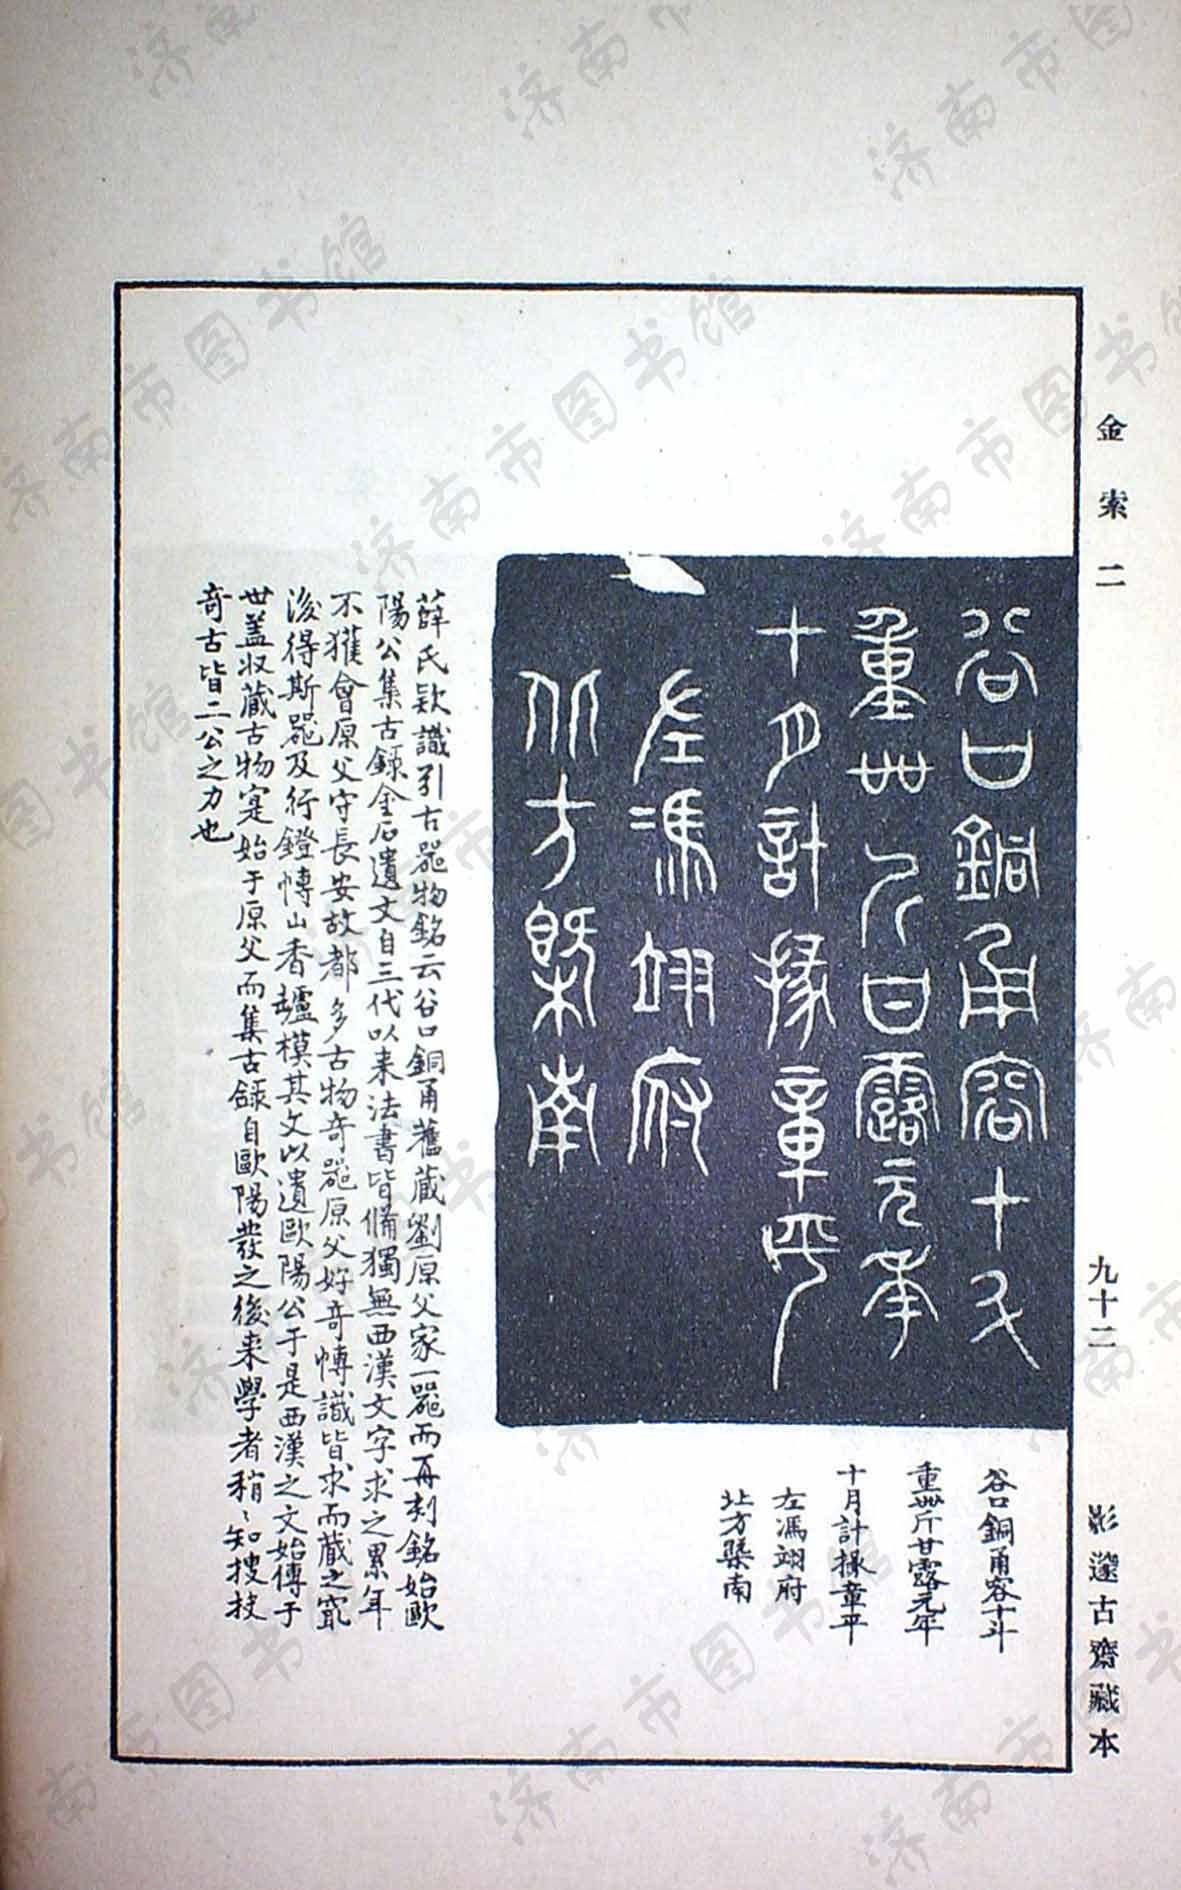 金索二
九十二
影邃古齋藏本
谷口銅甬容十斗
重卌斤甘露元年
十月計掾章平
左馮翊府
北方槩南
谷口銅甬容十斗
重卌斤甘露元年
十月計掾章平
左馮翊府
北方槩南
薛氏款識引古器物銘云谷口銅甬舊藏劉原父家一器而再刻銘始歐
陽公集古錄金石遺文自三代以來法書皆備獨無西漢文字求之累年
不獲會原父守長安故都多古物奇器原父好奇博識皆求而藏之冣
後得斯器及行鐙博山香爐模其文以遺歐陽公于是西漢之文始傳于
世蓋收藏古物寔始于原父而集古錄自歐陽發之後來學者稍〻知搜抉
奇古皆二公之力也
济南市图书馆